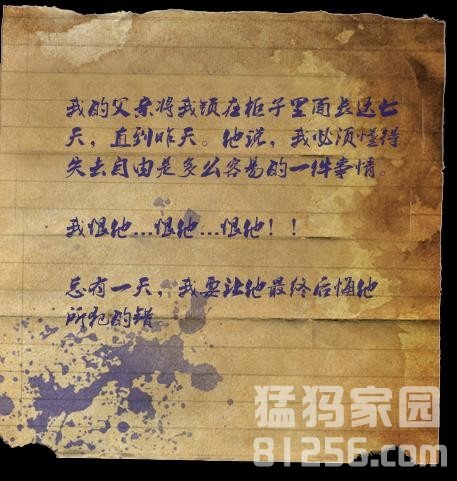 我的父亲将我锁在柜子里面长达七
天，直到昨天。他说，我必须懂得
失去自由是多么容易的一件事情。
我恨他...恨他...恨他！！
总有一天，我要让他最终后悔他
所犯的错。
猛犸家园
81256.com